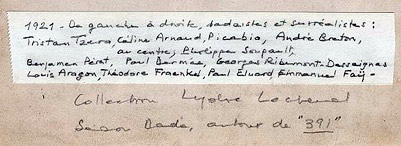 1921 - De gauche à droite, dadaïstes et surréalistes :
Tristan Tzara, Céline Arnaud, Picabia, André Breton,
au centre, Philippe Soupault,
Benjamin Péret, Paul Dermée, Georges Ribemont-Dessaignes
Louis Aragon, Théodore Fraenkel, Paul Eluard, Emmanuel Faÿ -
Collection Lydie
Saison Dada, autour de "391"